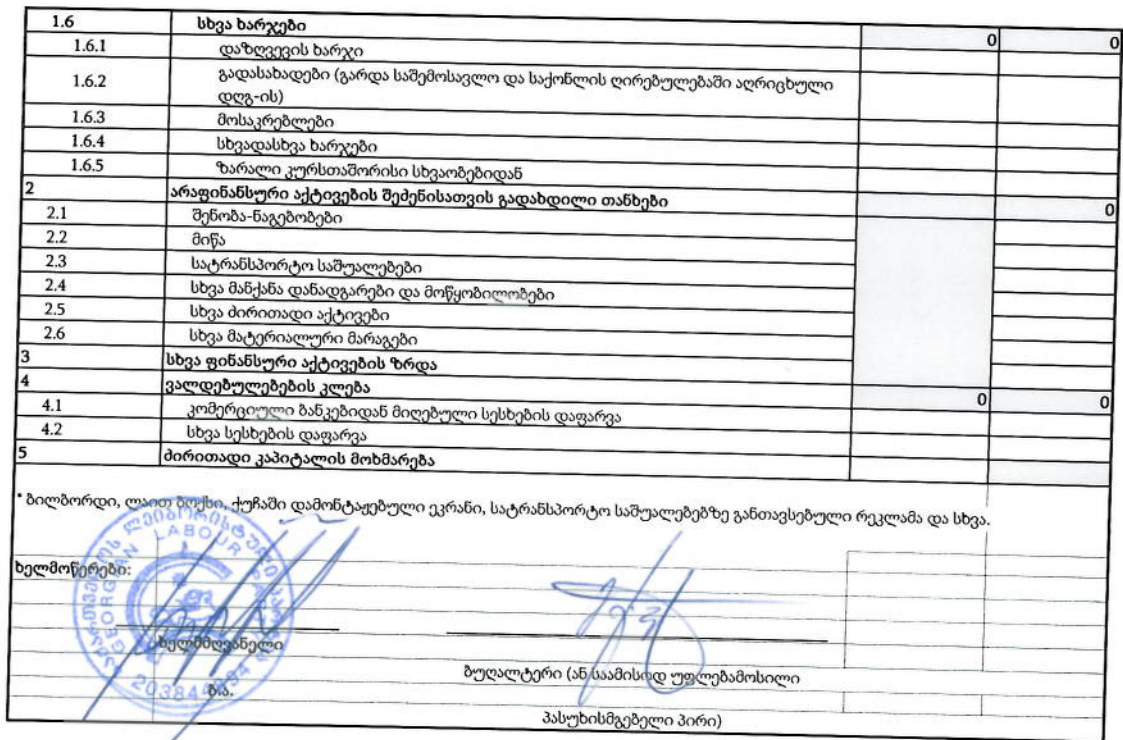 1.6 სხვა ხარჯები 0 0
1.6.1 დაზღვევის ხარჯი
1.6.2 გადასახადები (გარდა საშემოსავლო და საქონლის ღირებულებაში აღრიცხული
დღგ-ის)
1.6.3 მოსაკრებლები
1.6.4 სხვადასხვა ხარჯები
1.6.5 ზარალი კურსთაშორისი სხვაობებიდან
2 არაფინანსური აქტივების შეძენისათვის გადახდილი თანხები 0
2.1 შენობა-ნაგებობები
2.2 მიწა
2.3 სატრანსპორტო საშუალებები
2.4 სხვა მანქანა დანადგარები და მოწყობილობები
2.5 სხვა ძირითადი აქტივები
2.6 სხვა მატერიალური მარაგები
3 სხვა ფინანსური აქტივების ზრდა
4 ვალდებულებების კლება 0 0
4.1 კომერციული ბანკებიდან მიღებული სესხების დაფარვა
4.2 სხვა სესხების დაფარვა
5 ძირითადი კაპიტალის მოხმარება
* ბილბორდი, ლაით ბოქსი, ქუჩაში დამონტაჟებული ეკრანი, სატრანსპორტო საშუალებებზე განთავსებული რეკლამა და სხვა.
GEORGIAN LABOUR
ხელმოწერები:
ხელმძღვანელი
ბუღალტერი (ან საამისოდ უფლებამოსილი
ბ.ა.
პასუხისმგებელი პირი)